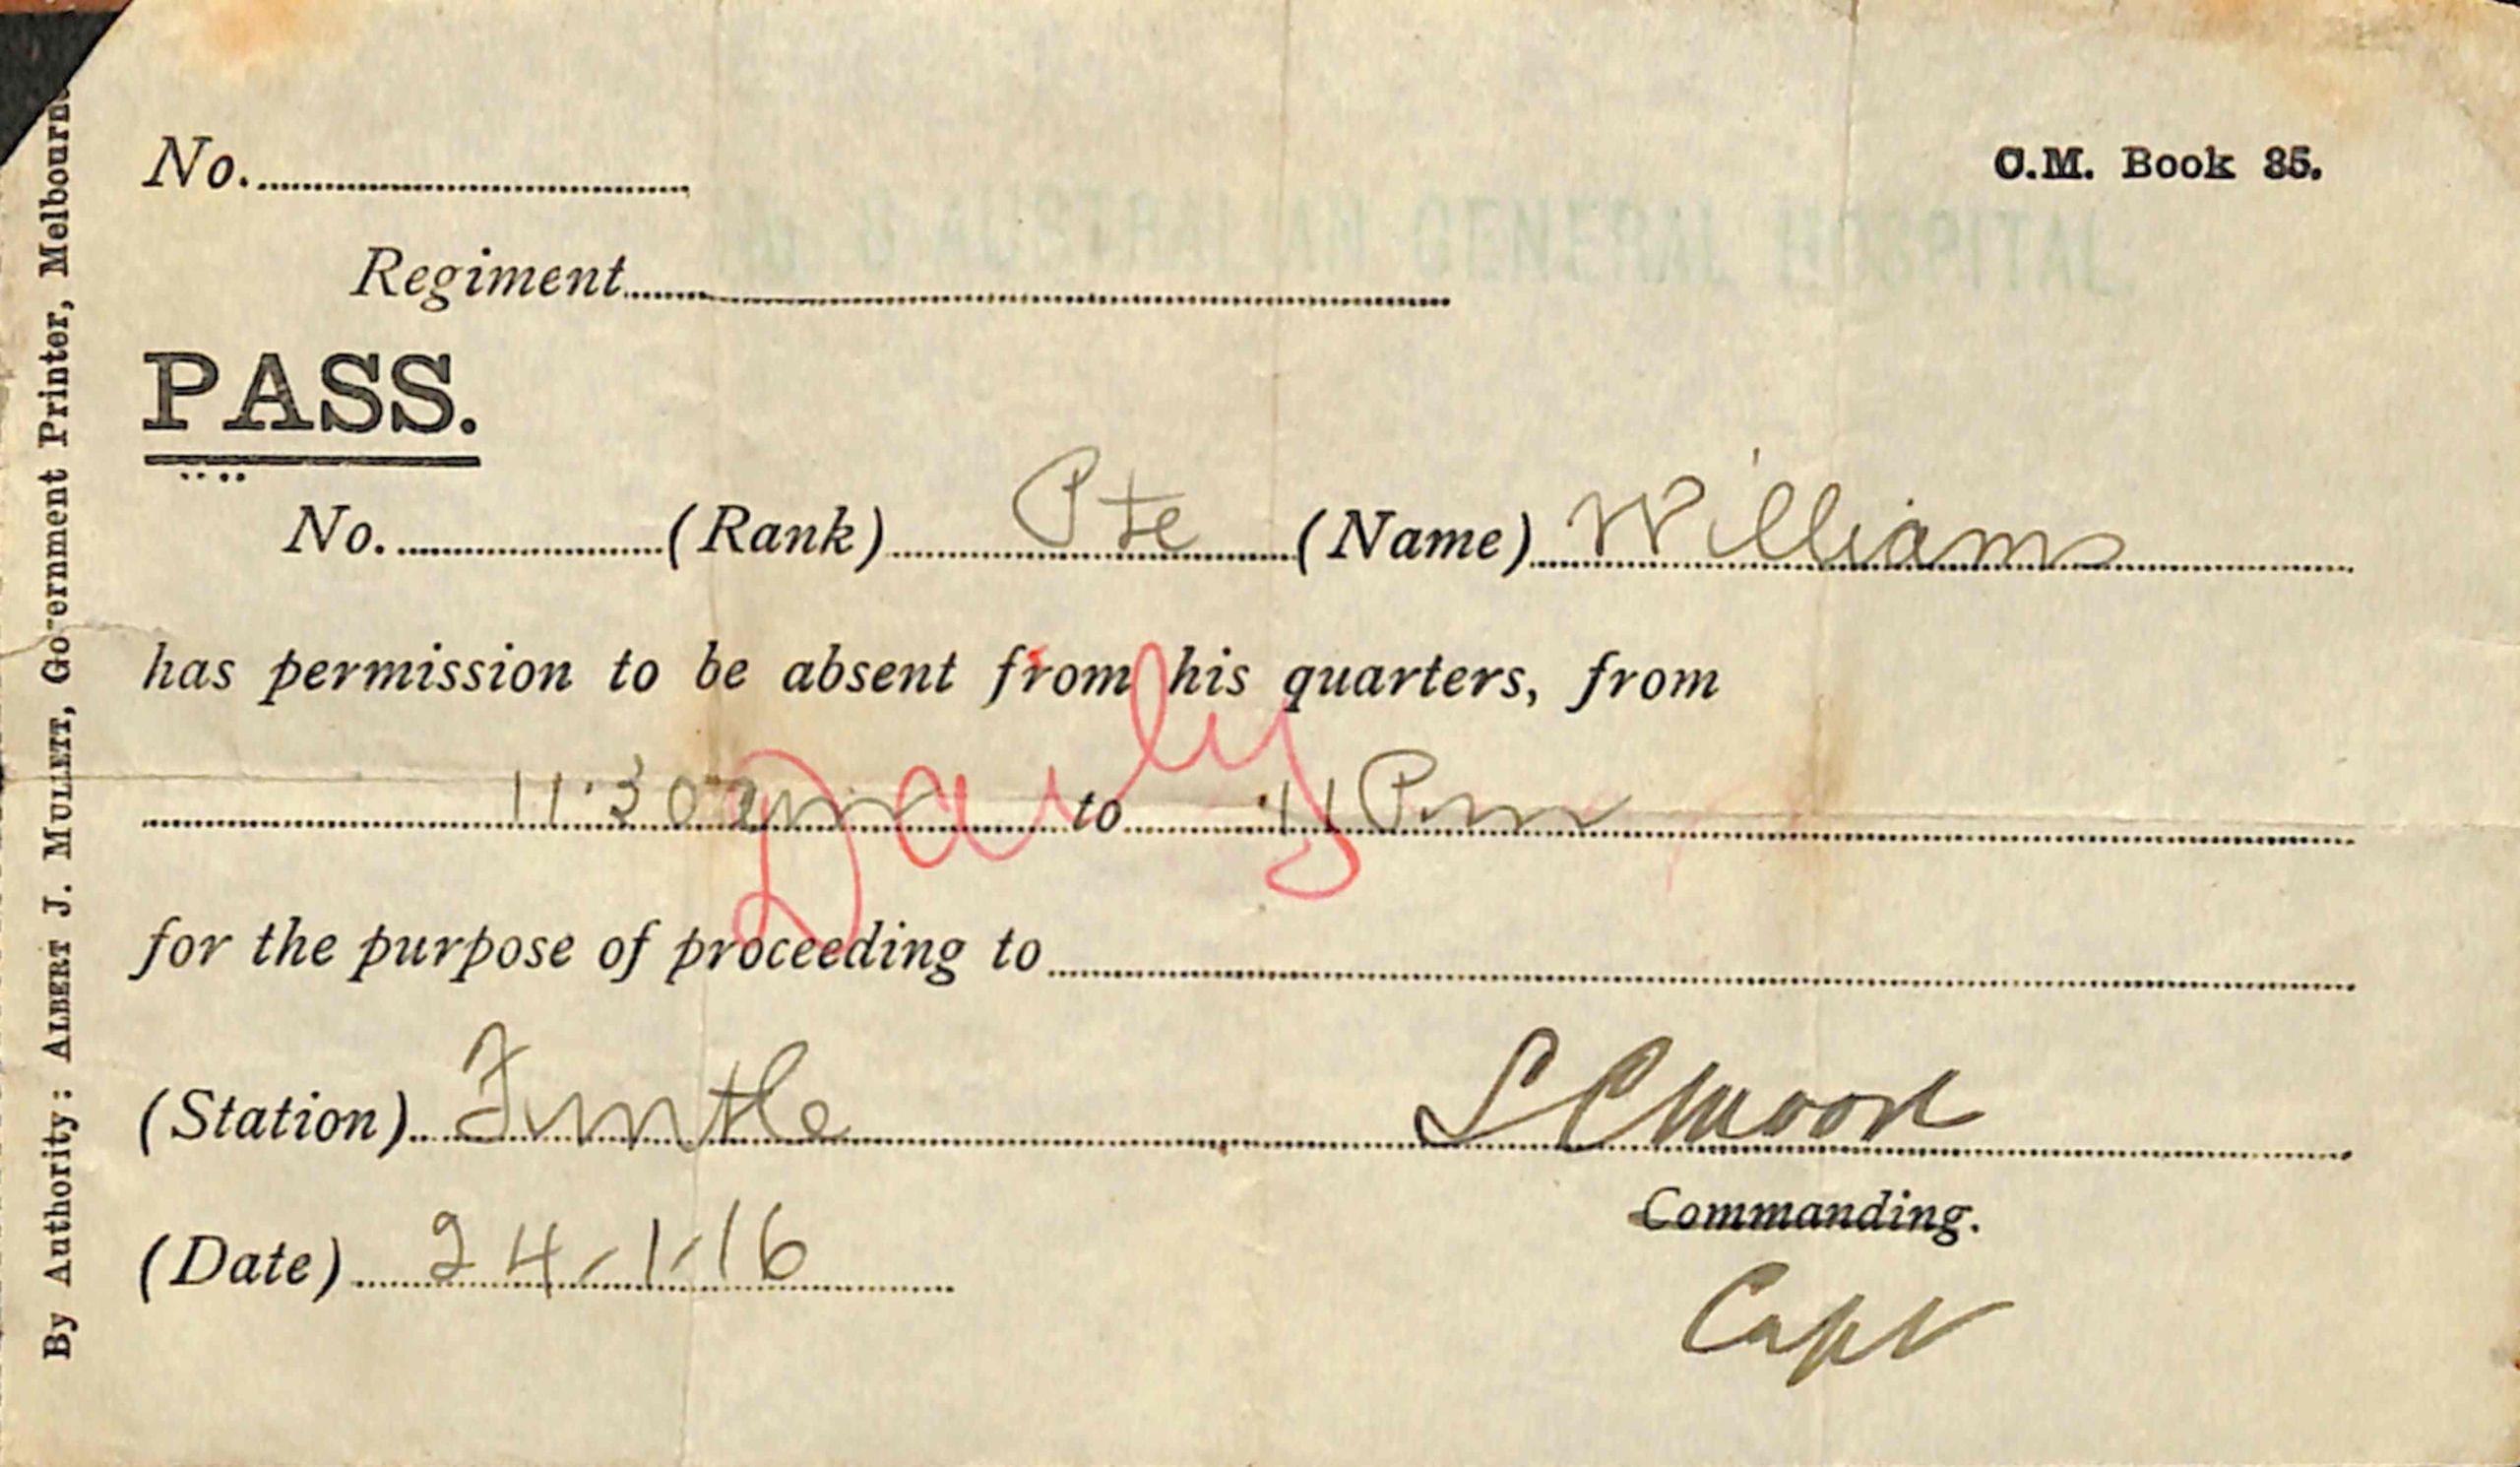 No.
C.M. Book 35.
AUSTRALIAN GENERAL HOSPITAL
Regiment
PASS.
No. (Rank) Pte (Name) Williams
has permission to be absent from his quarters, from
11.30 am to 11 Pm
Daily
for the purpose of proceeding to
(Station)
Commanding.
(Date) 24/1/16
Capt
By Authority: ALBERT J. MULLETT, Government Printer, Melbourne